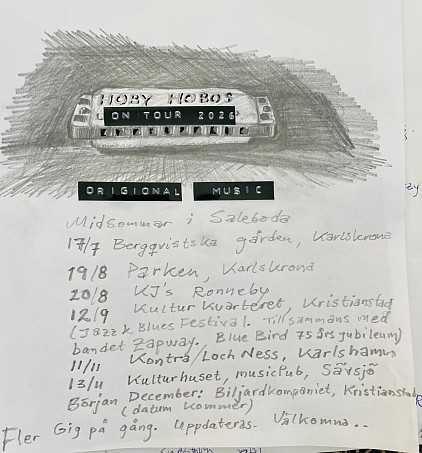 HOBY HOBOS
ON TOUR 2026
ORIGIONAL MUSIC
Midsommar i Saleboda
17/7 Bergqvistska gården, Karlskrona
19/8 Parken, Karlskrona
20/8 KJ's Ronneby
12/9 Kulturkvarteret, Kristianstad
(Jazz & Blues Festival. Tillsammans med
bandet Zapway. Blue Bird 75 års jubileum)
11/11 Kontra/Loch Ness, Karlshamn
13/11 Kulturhuset, musicPub, Sävsjö
Början December: Biljardkompaniet, Kristianstad
(datum kommer)
Fler Gig på gång. Uppdateras. Välkomna..